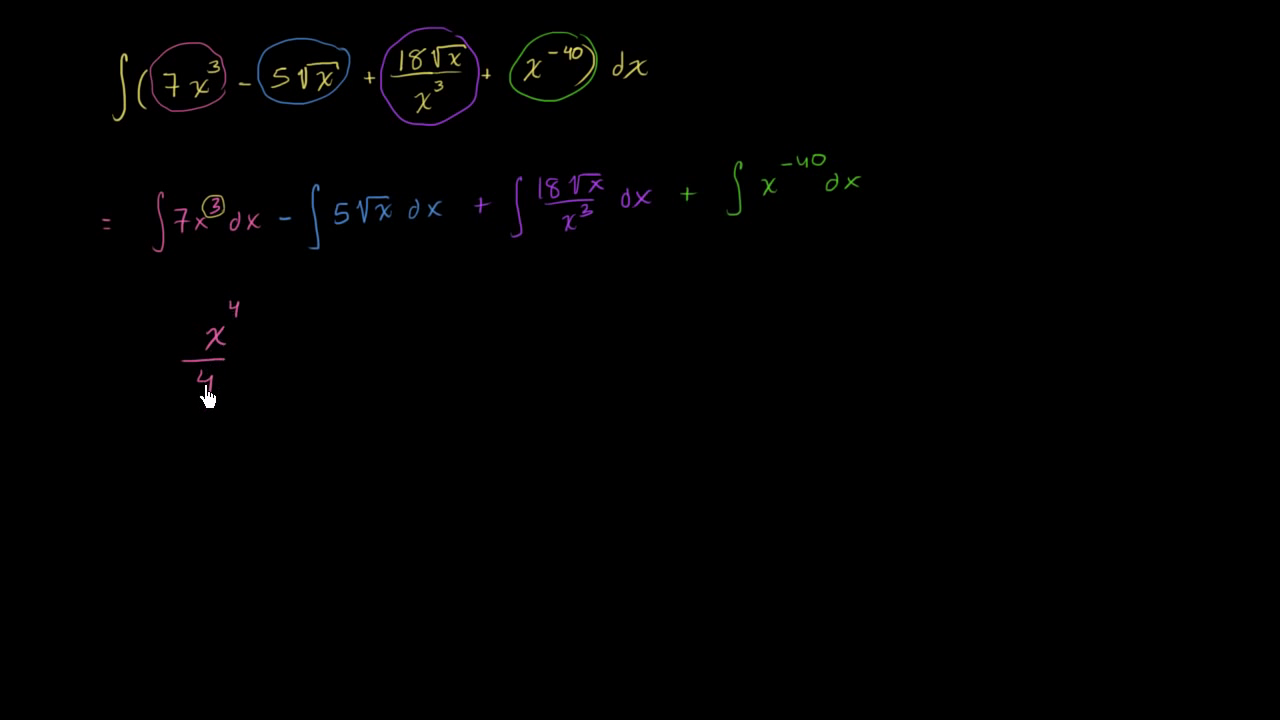 ∫(7x³ - 5√x + 18√x/x³ + x⁻⁴⁰) dx
= ∫7x³ dx - ∫5√x dx + ∫18√x/x³ dx + ∫x⁻⁴⁰ dx
x⁴/4